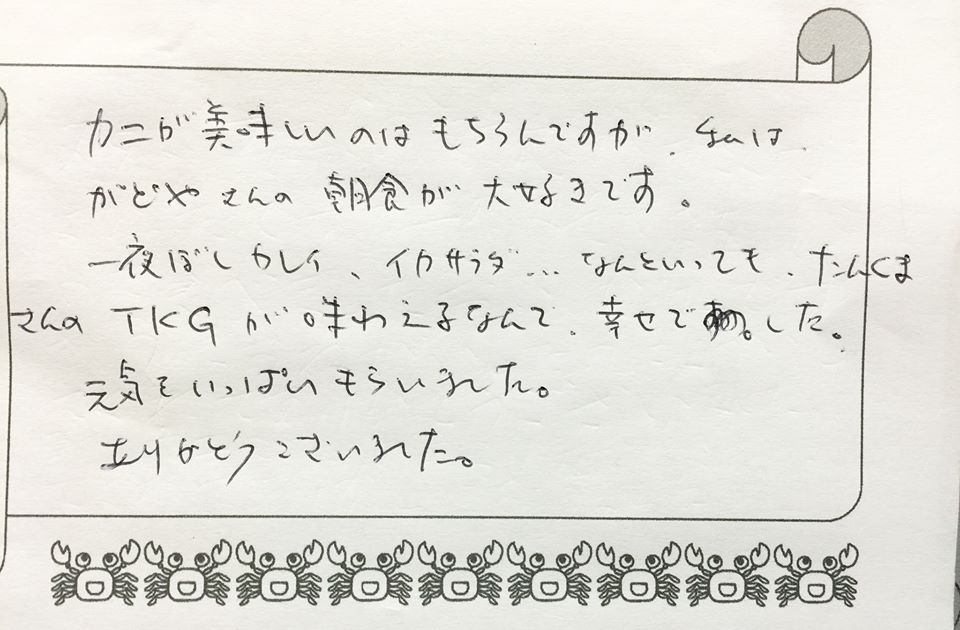 カニが美味しいのはもちろんですが、私は、
かどやさんの朝食が大好きです。
一夜ぼしカレイ、イカサラダ…なんといっても、たんくま
さんのTKGが味わえるなんて、幸せで した。
元気をいっぱいもらいました。
ありがとうございました。